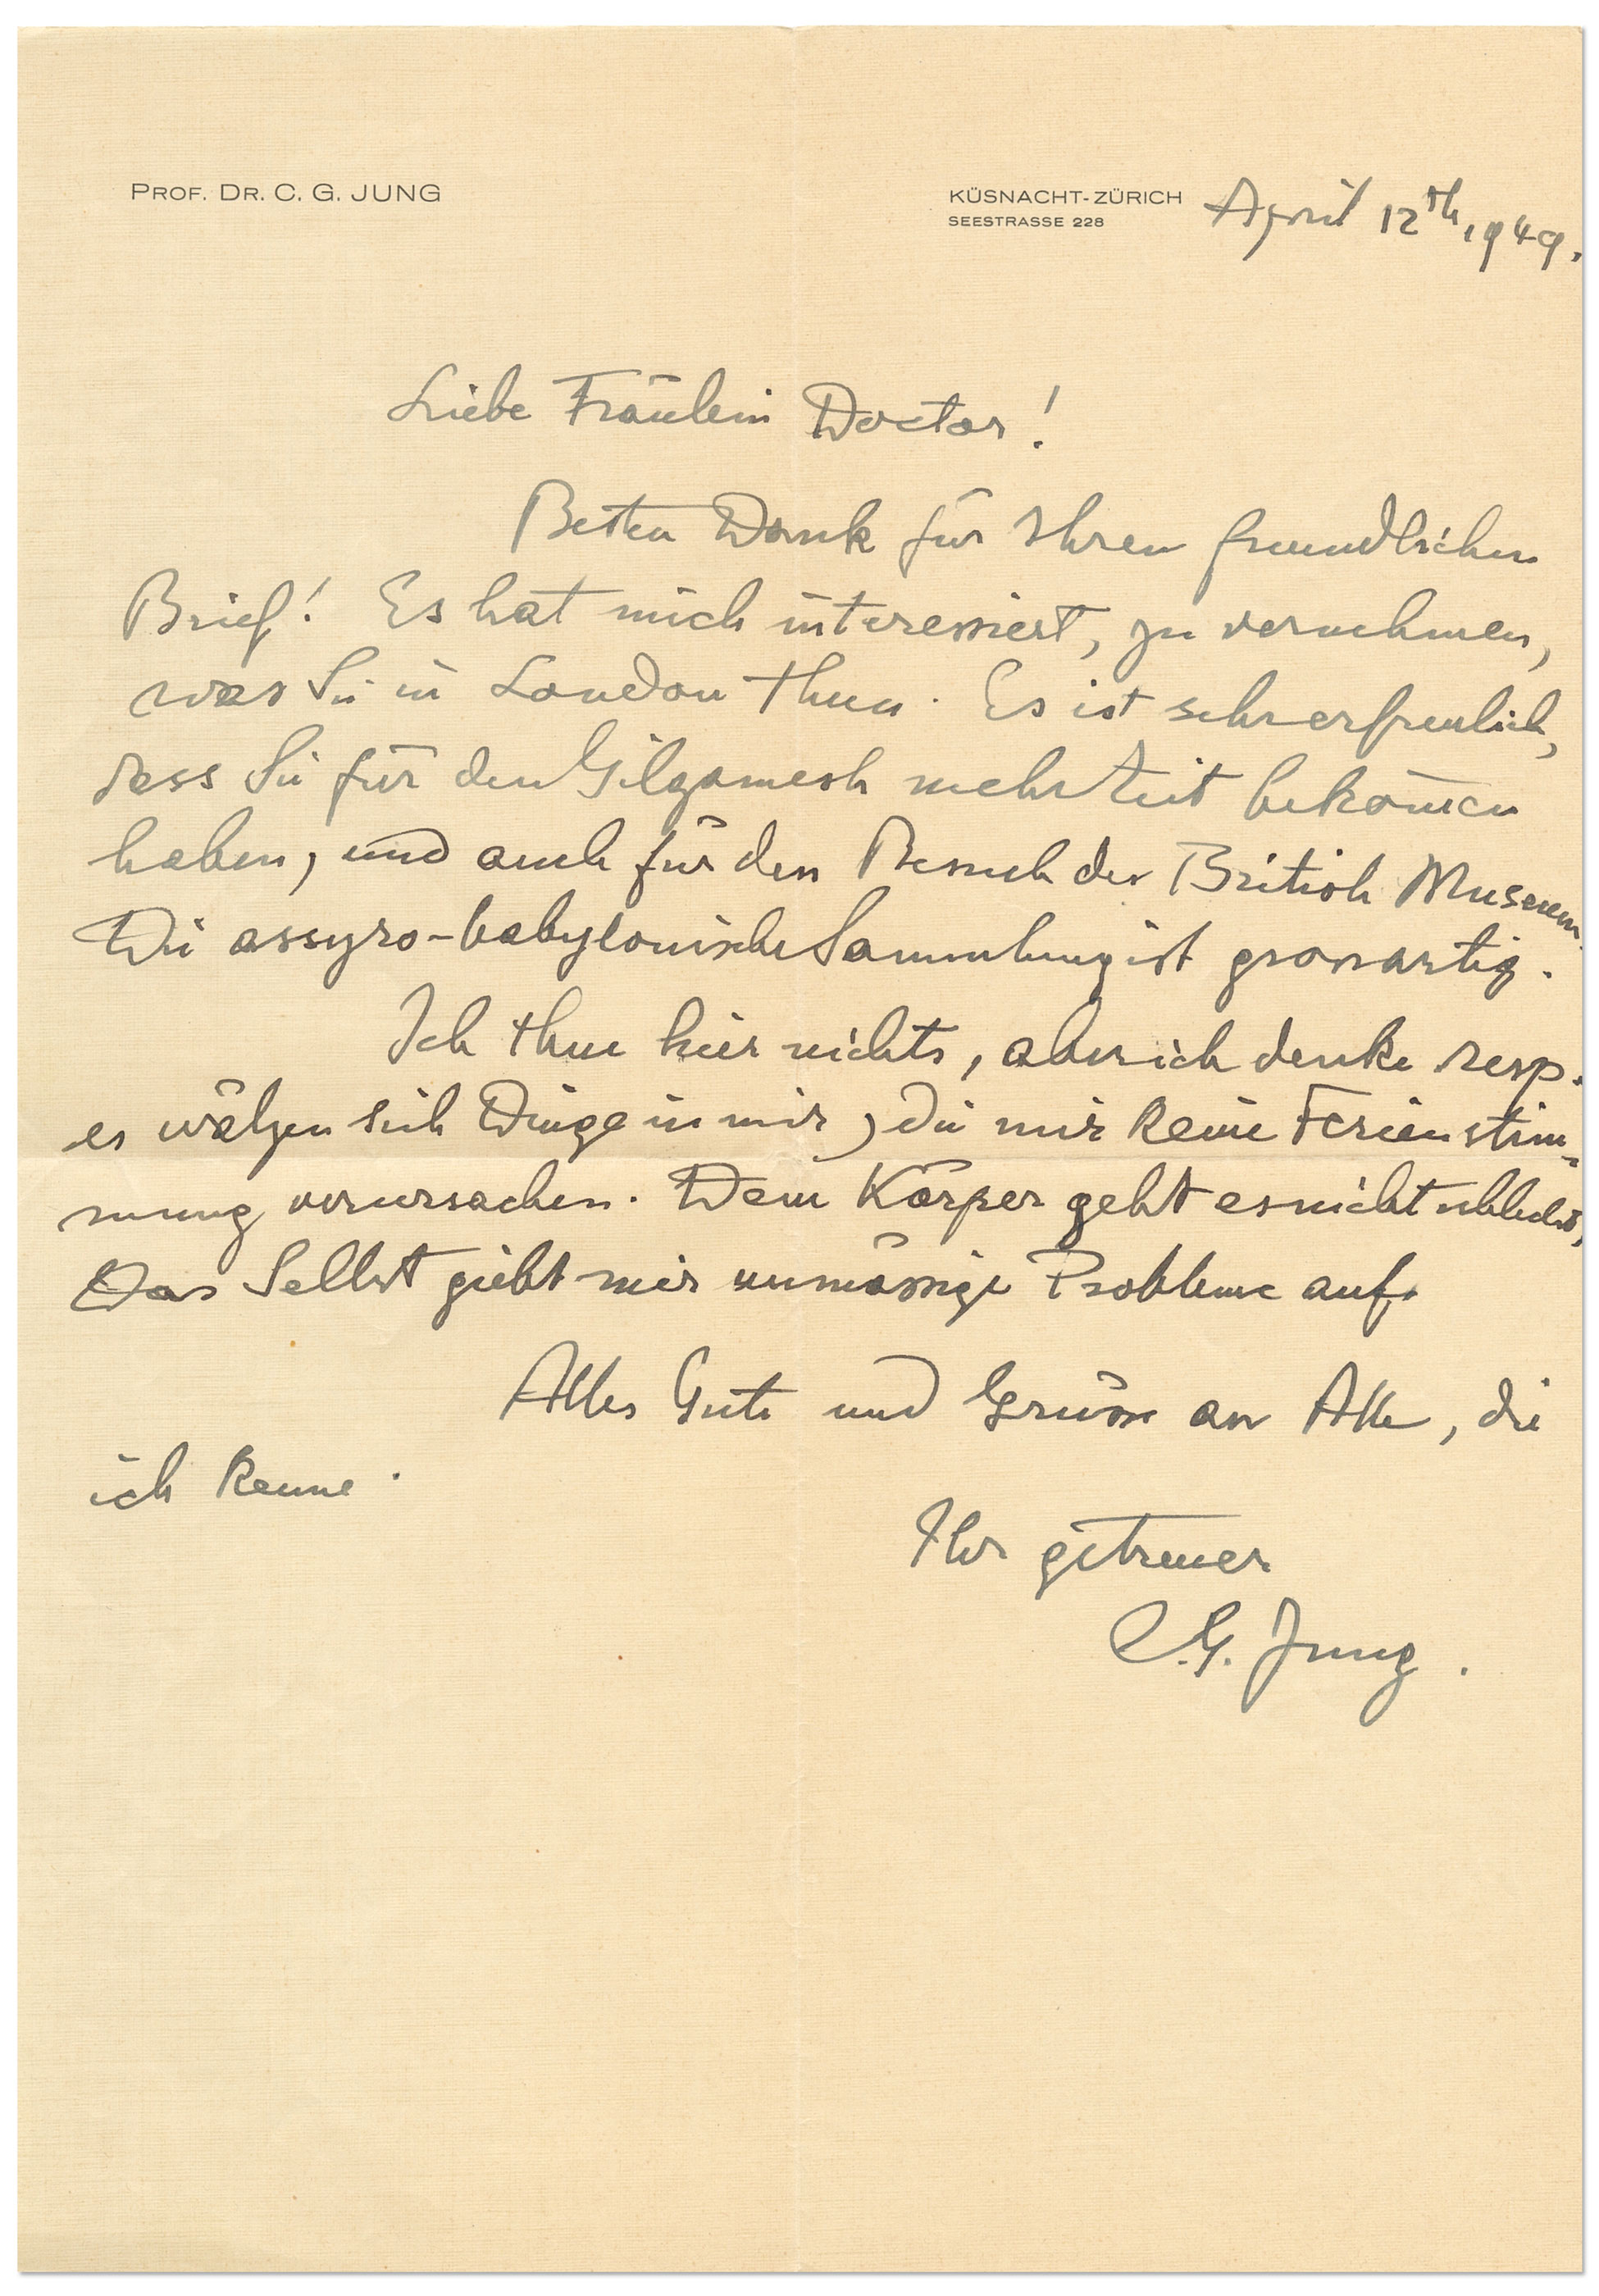 PROF. DR. C. G. JUNG
KÜSNACHT-ZÜRICH
SEESTRASSE 228
April 12th, 1949.
Liebe Fräulein Doctor!
Besten Dank für Ihren freundlichen
Brief! Es hat mich interessiert, zu vernehmen,
was Sie in London thun. Es ist sehr erfreulich,
dass Sie für den Gilgamesh mehr Zeit bekom̅en
haben, und auch für den Besuch des British Museum.
Die assyro-babylonische Sammlung ist grossartig.
Ich thue hier nichts, aber ich denke resp.
es wälzen sich Dinge in mir, die mir keine Ferienstim=
mung verursachen. Dem Körper geht es nicht schlecht,
Das Selbst giebt mir unmässige Probleme auf.
Alles Gute und Grüsse an Alle, die
ich kenne.
Ihr getreuer
C.G. Jung.